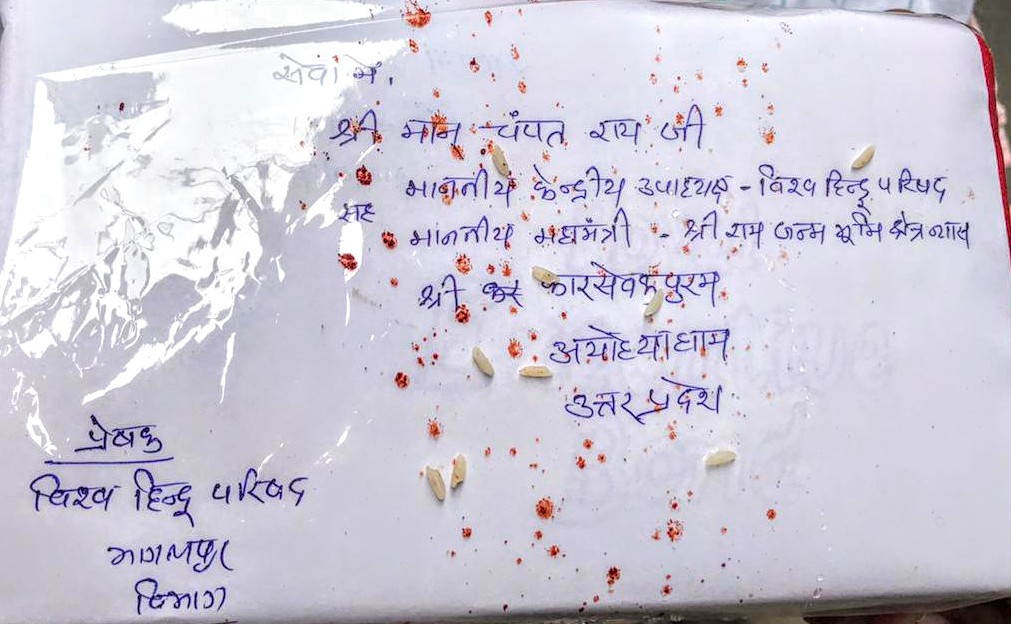 सेवा में,
श्री मान चंपत राय जी
माननीय केन्द्रीय उपाध्यक्ष - विश्व हिन्दू परिषद
सह
माननीय महामंत्री - श्री राम जन्म भूमि क्षेत्र न्यास
श्री कारसेवक पुरम
अयोध्या धाम
उत्तर प्रदेश
प्रेषक
विश्व हिन्दू परिषद
भागलपुर
विभाग